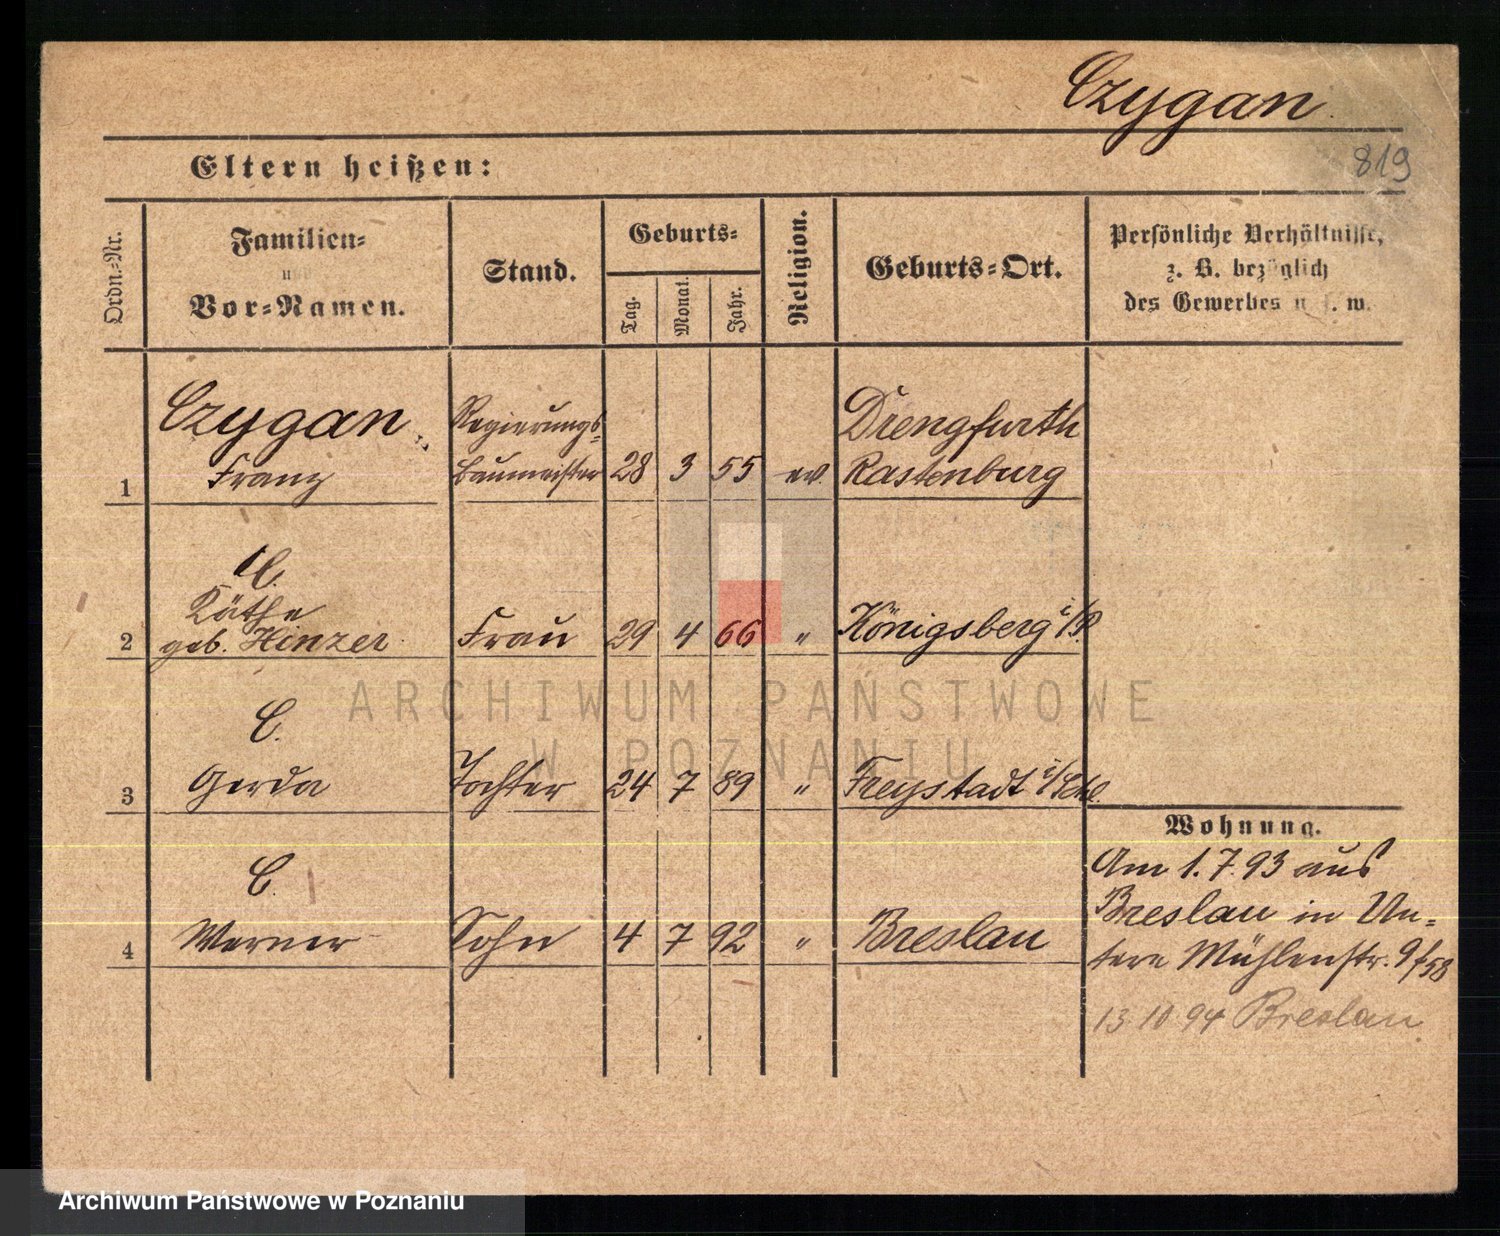 Czygan.
819
Eltern heißen:
Ordn.-Nr.
Familien-
und
Vor-Namen.
Stand.
Geburts-
Tag.
Monat.
Jahr.
Religion.
Geburts-Ort.
Persönliche Verhältnisse,
z. B. bezüglich
des Gewerbes u. s. w.
Czygan
Franz
Regierungs-
baumeister
1
28 3 55 ev.
Drengfurth
Rastenburg
C.
Käthe
geb. Hinzer
2
Frau 29 4 66 " Königsberg i/P.
C.
3 Gerda Tochter 24 7 89 " Freystadt i/Schl.
C.
4 Werner Sohn 4 7 92 " Breslau
Wohnung.
Am 1.7.93 aus
Breslau in Un-
tere Mühlenstr. 9/58
13 10 94 Breslau
ARCHIWUM PAŃSTWOWE
W POZNANIU
Archiwum Państwowe w Poznaniu